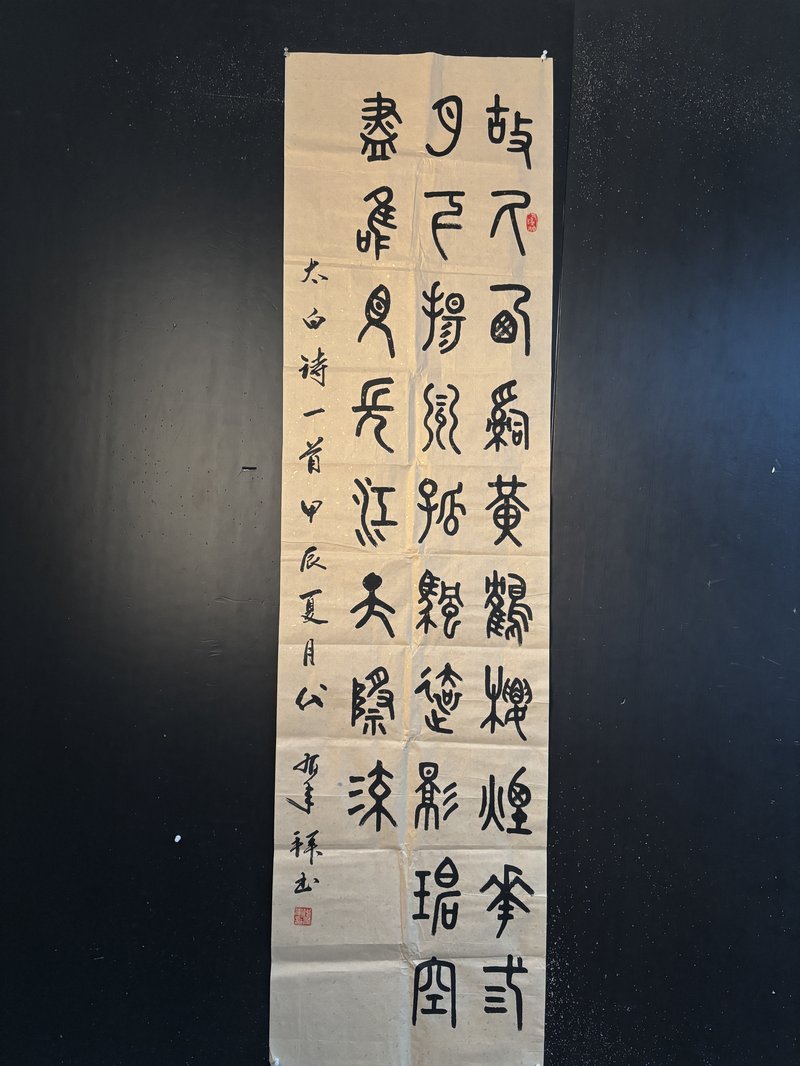 故人西辭黃鶴樓煙花弎
月下揚州孤帆遠影碧空
盡唯見長江天際流
太白诗一首甲辰夏月拜书